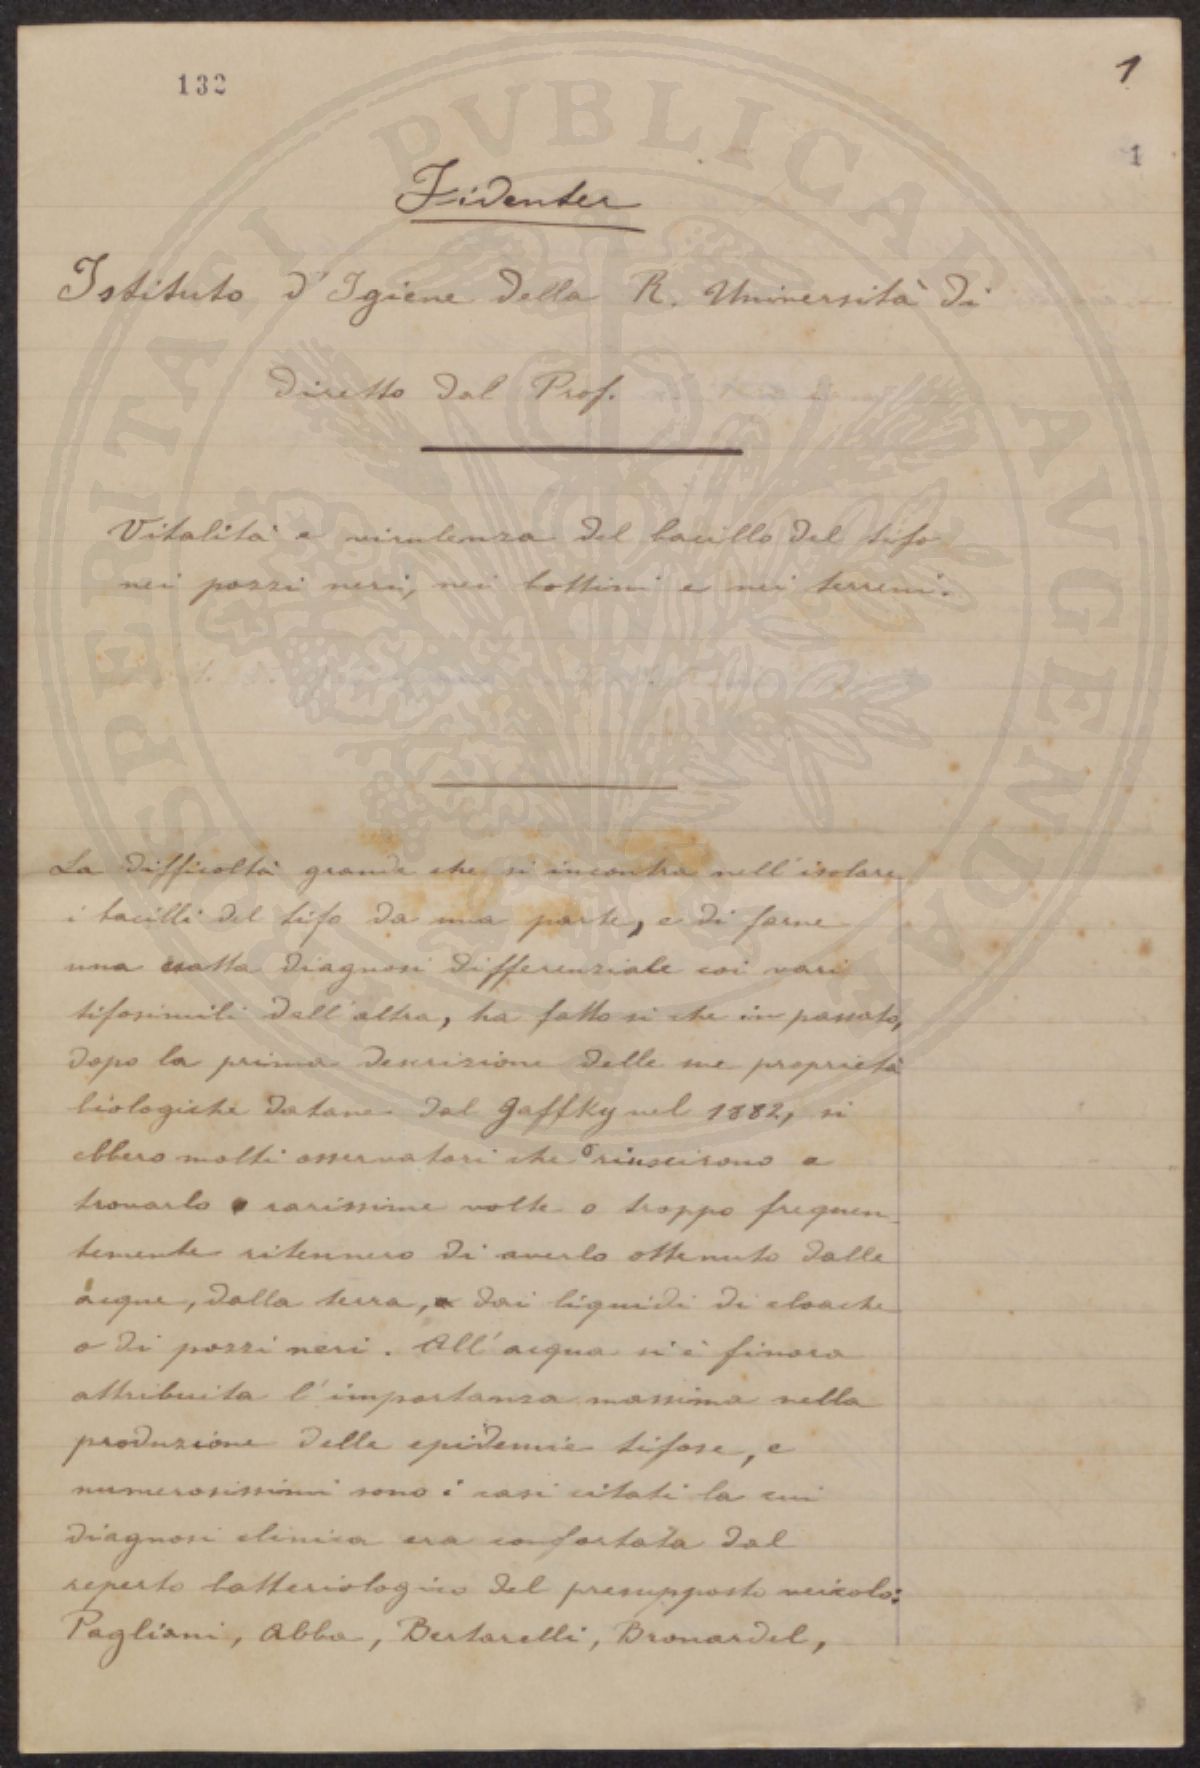 132
1
1
Fidenter
Istituto d'Igiene della R. Università di
diretto dal Prof.
Vitalità e virulenza del bacillo del tifo
nei pozzi neri, nei bottini e nei terreni.
La difficoltà grande che si incontra nell'isolare
i bacilli del tifo da una parte, e di farne
una esatta diagnosi differenziale coi vari
tifosimili dall'altra, ha fatto si che in passato,
dopo la prima descrizione delle sue proprietà
biologiche datane dal Gaffky nel 1882, si
ebbero molti osservatori che o riuscirono a
trovarlo rarissime volte o troppo frequen-
temente ritennero di averlo ottenuto dalle
acque, dalla terra, dai liquidi di cloache
o di pozzi neri. All'acqua si è finora
attribuita l'importanza massima nella
produzione delle epidemie tifose, e
numerosissimi sono i casi citati la cui
diagnosi clinica era confortata dal
reperto batteriologico del presupposto veicolo:
Pagliani, Abba, Bertarelli, Bronardel,
PROSPERITATI PVBLICAE AVGENDAE